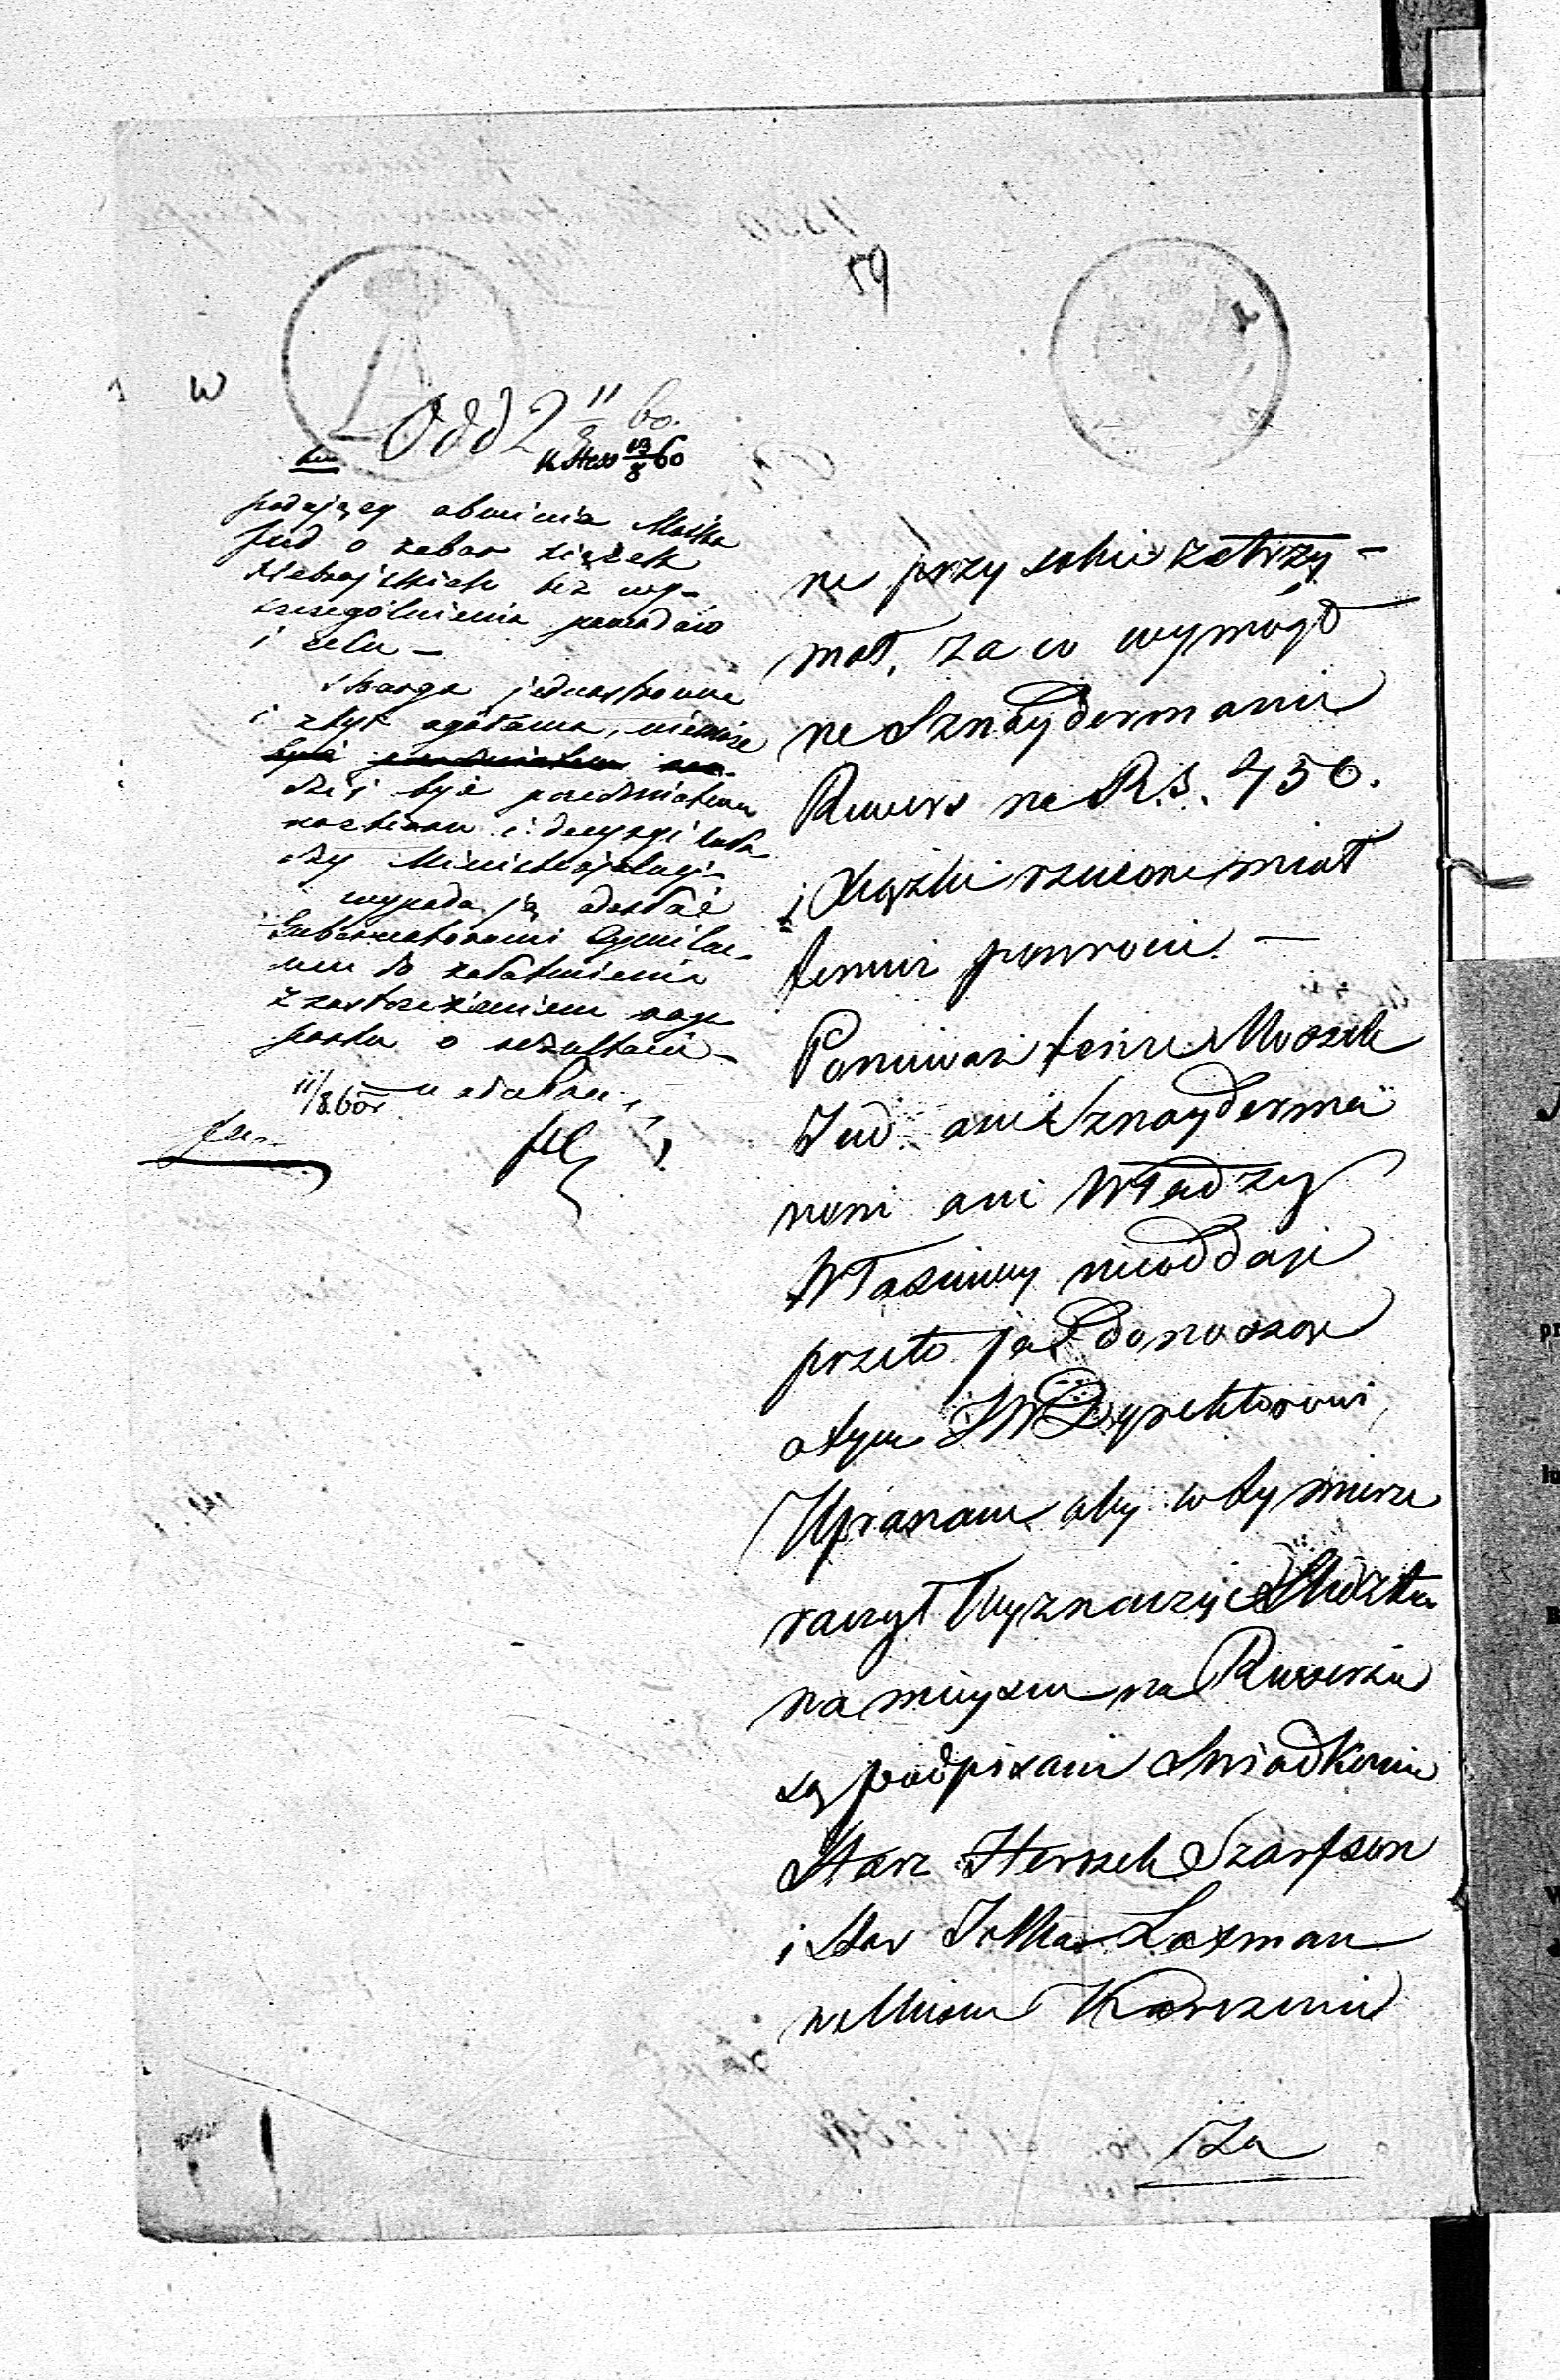 59
W
Odd 2 11/8 60.
13/8 60
podający obwinia Moška
Jud o zabor xiążek
Hebrajskich bez wy-
szczególnienia powodów
i celu -
skarga jednostronna
i zbyt ogólowa, niemoże
być przedmiotem
dziś być przedmiotem
rozbioru i decyzyi wła-
dzy Ministeryalnej -
wypada ją odesłać
Gubernatorowi Cywilne-
mu do załatwienia
z zastrzeżeniem rap-
portu o rezultacie -
11/8 60 r.
ne przy sobie zatrzy-
mał, za co wymógł
na Sznaydermanie
Rewers na R.S. 450.
i Xiążki rzeczone miał
temuż powrocić. -
Ponieważ tenże Moszek
Jud ani Sznayderma
nowi ani Władzy
Własciwey nieoddaje
przeto ja donoszę
otym JW Dyrektorowi,
Upraszam aby w ty mierze
raczył Wyznaczyć Sledztwo
na mieyscu na Rewersie
są podpisani Swiadkowie
Starz Herszek Szarfson
i Star Laxman
w Mieście Karczewie
Za